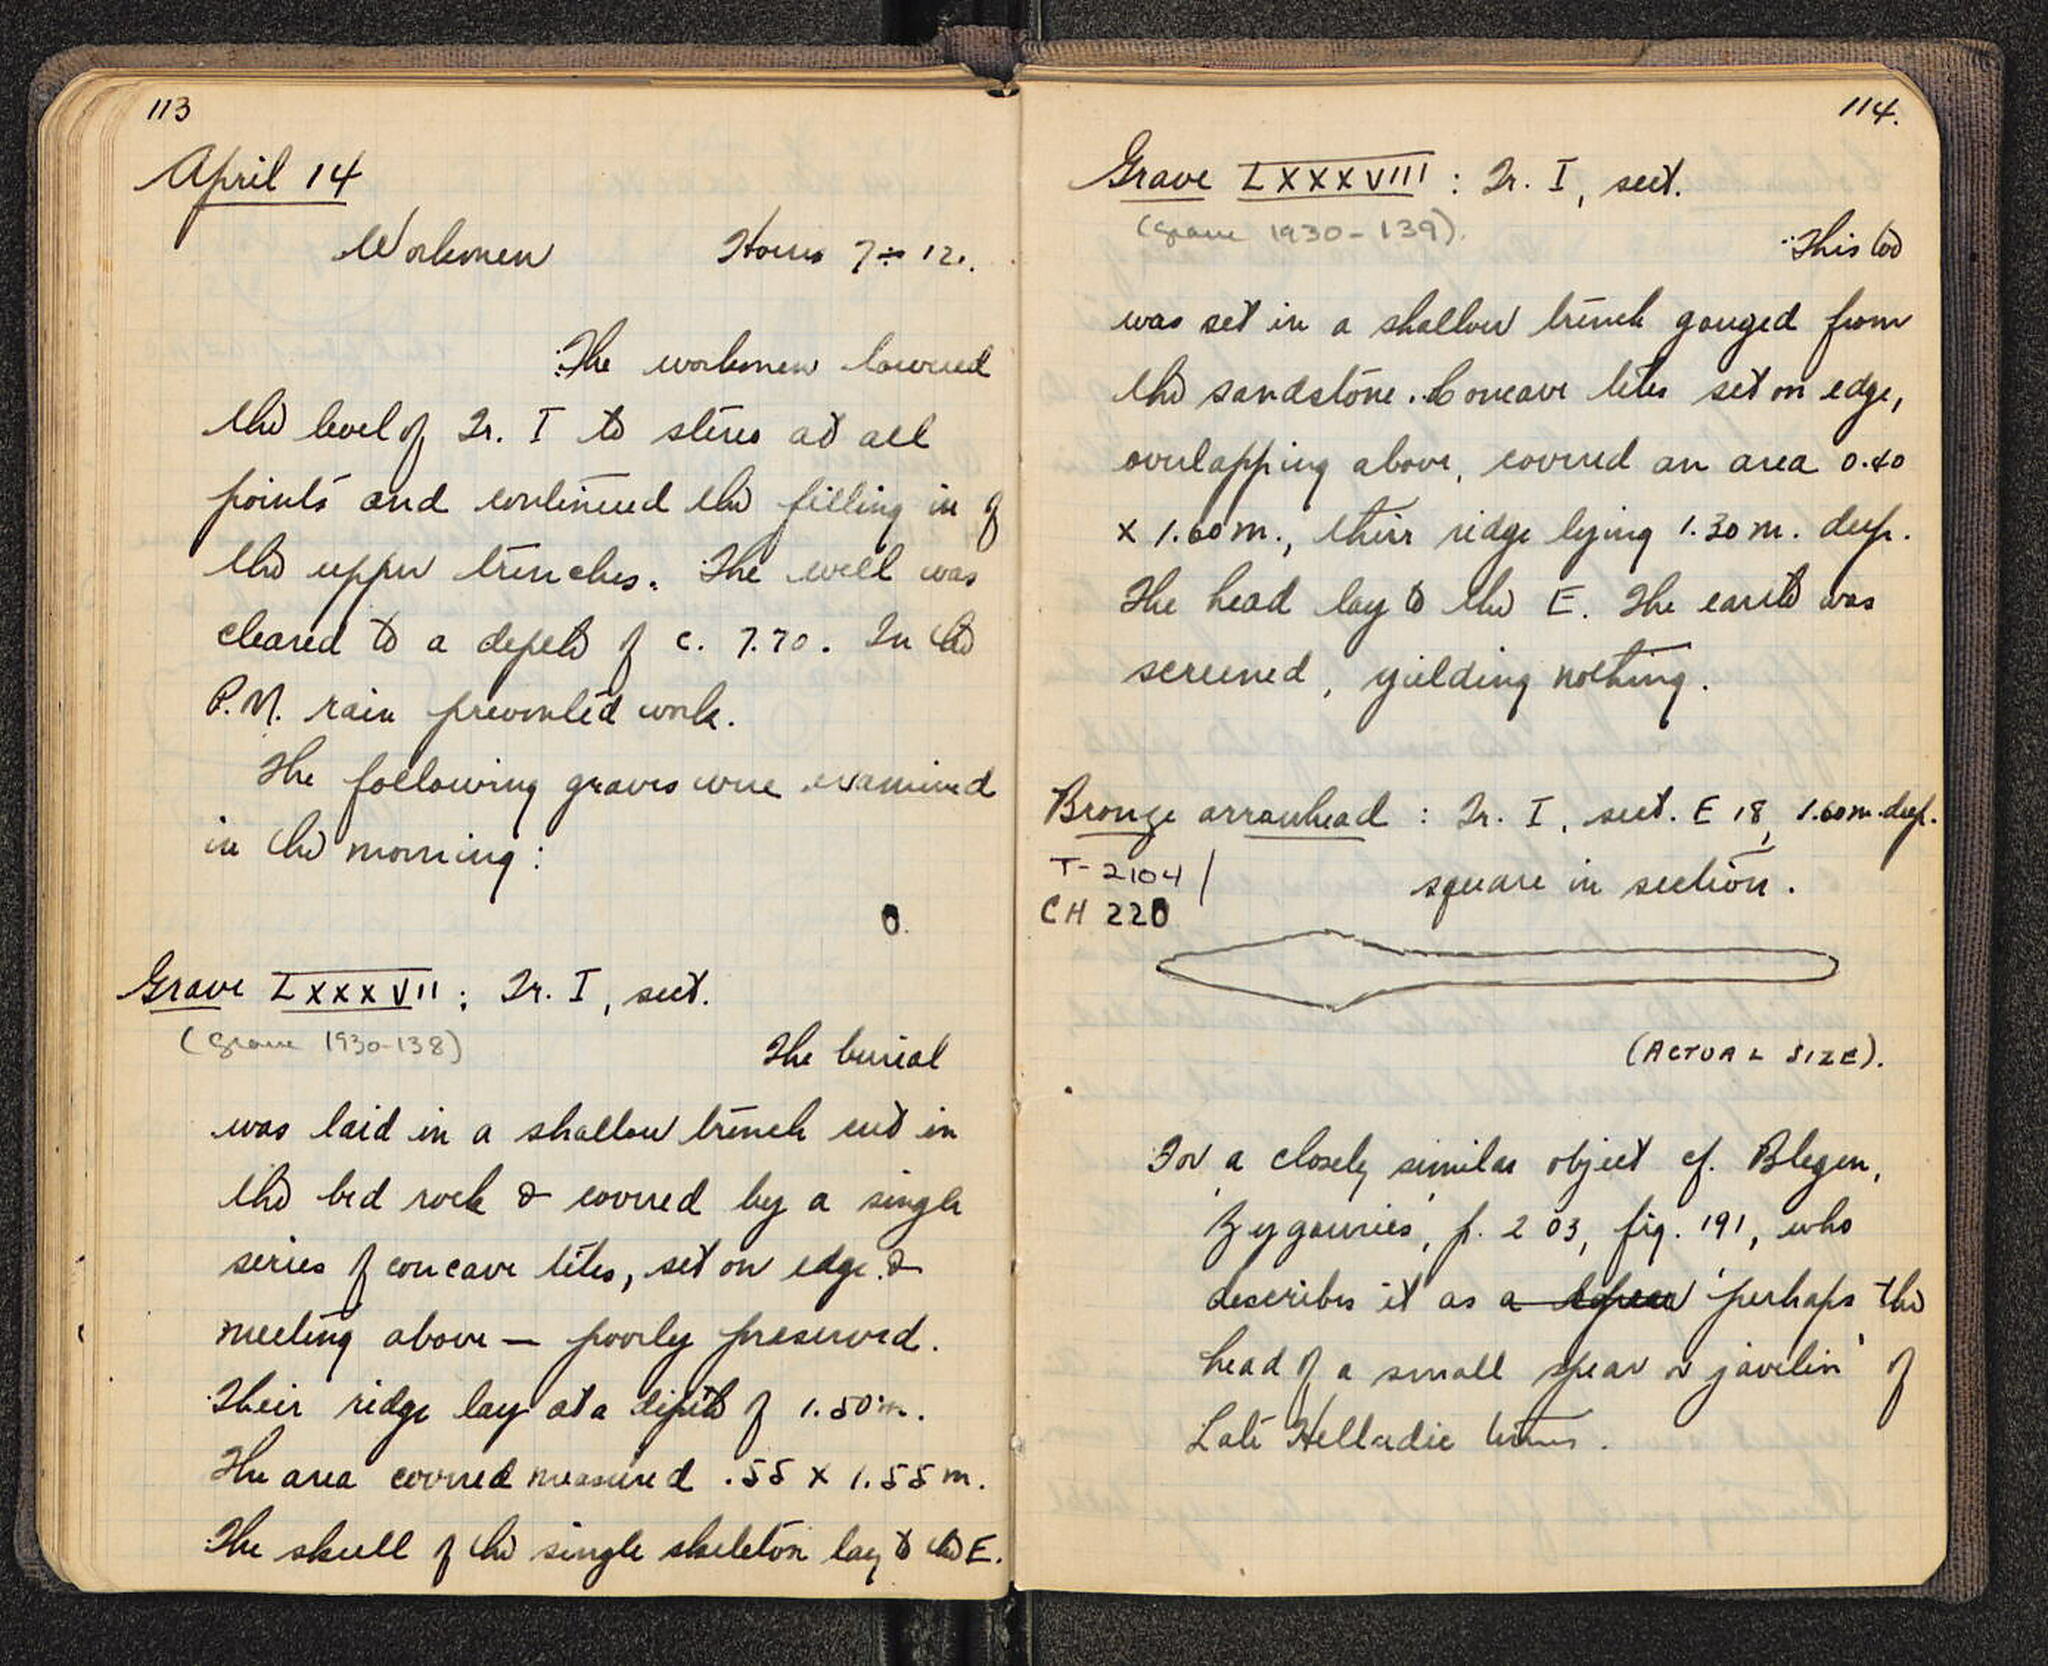 113
April 14
Workmen Hours 7 ÷ 12.
The workmen lowered
the level of Tr. I to stereo at all
points and continued the filling in of
the upper trenches. The well was
cleared to a depth of c. 7.70. In the
P.M. rain prevented work.
The following graves were examined
in the morning:
Grave LXXXVII: Tr. I, sect.
(Grave 1930-138)
The burial
was laid in a shallow trench cut in
the bed rock & covered by a single
series of concave tiles, set on edge &
meeting above — poorly preserved.
Their ridge lay at a depth of 1.50 m.
The area covered measured .55 x 1.55 m.
The skull of the single skeleton lay to the E.
114.
Grave LXXXVIII: Tr. I, sect.
(Grave 1930-139).
This too
was set in a shallow trench gouged from
the sandstone. Concave tiles set on edge,
overlapping above, covered an area 0.40
x 1.60 m., their ridge lying 1.30 m. deep.
The head lay to the E. The earth was
screened, yielding nothing.
Bronze arrowhead: Tr. I, sect. E 18, 1.60 m. deep.
T-2104
square in section.
CH 220
(ACTUAL SIZE).
For a closely similar object cf. Blegen,
'Zygouries', p. 203, fig. 191, who
describes it as a spear 'perhaps the
head of a small spear or javelin' of
Late Helladic times.